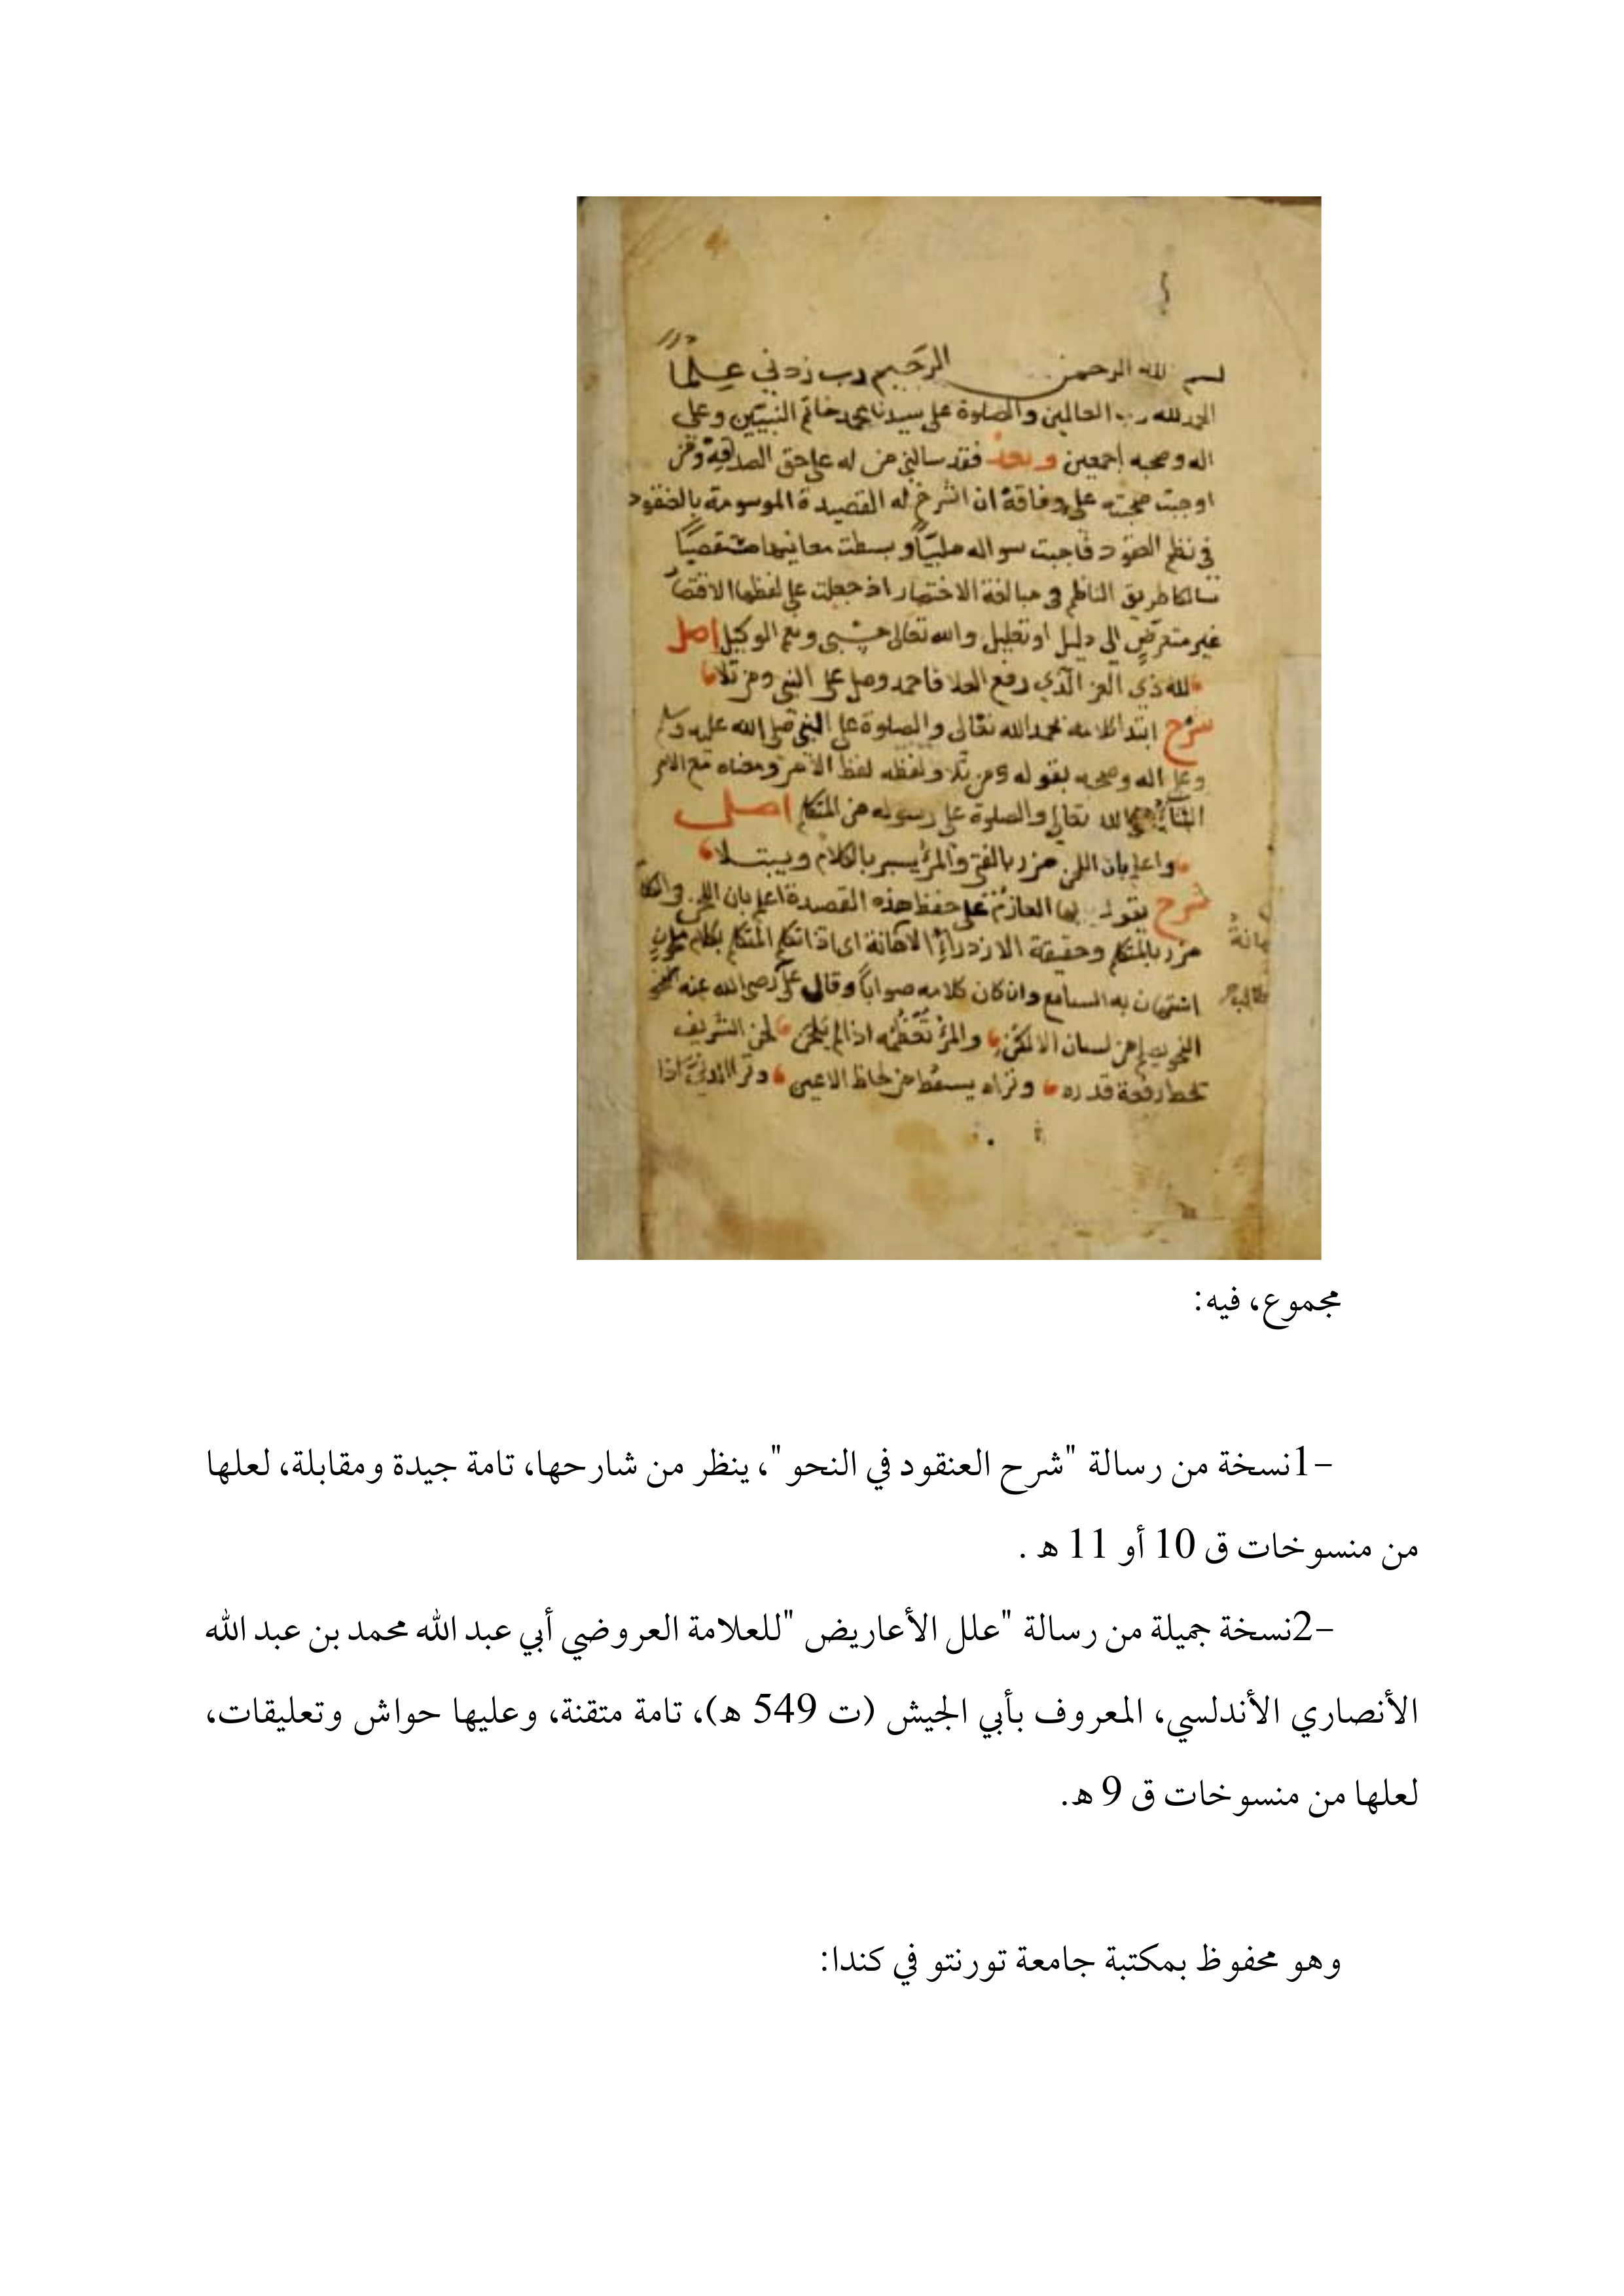 بسم الله الرحمن الرحيم رب زدني علمًا
الحمد لله رب العالمين والصلوة على سيدنا محمد خاتم النبيين وعلى
اله وصحبه اجمعين وبعد فقد سالني من له على حق الصداقة ومن
اوجبت صحبته على وفاقه ان اشرح له القصيدة الموسومة بالعنقود
في نظم العقود فاجبت سواله ملبيًا وبسطت معانيها مستقصيًا
سالكا طريق الناظم في مبالغة الاختصار اذ جعلت على لفظها الاقتصار
غير متعرض الى دليل او تعليل والله تعالى حسبي ونعم الوكيل اصل
لله ذي العز الذي رفع العلا فاحمد وصل على النبي ومن تلا
شرح ابتدا كلامه بحمد الله تعالى والصلوة على النبي صلى الله عليه وسلم
وعلى اله وصحبه بقوله ومن تلا ولفظه لفظ الامر ومعناه مع الامر
الثنا لله تعالى والصلوة على رسوله من المتكلم اصل
واعلم بان اللحن مزر بالفتى والمرؤ يسبر بالكلام ويبتلا
شرح يقول ايها العازم على حفظ هذه القصيدة اعلم بان اللحن
مزر بالمتكلم وحقيقة الازدراء الاهانة اى اذا تكلم المتكلم بكلام
استهان به السامع وان كان كلامه صوابًا وقال على رضى الله عنه
النحو يصلح من لسان الالكن والمرؤ تعظمه اذا لم يلحن لحن الشريف
يحط رفعة قدره وتراه يسقط من لحاظ الاعين وترا الدني اذا
مجموع، فيه:
-1نسخة من رسالة "شرح العنقود في النحو"، ينظر من شارحها، تامة جيدة ومقابلة، لعلها
من منسوخات ق 10 أو 11 ه .
-2نسخة جميلة من رسالة "علل الأعاريض "للعلامة العروضي أبي عبد الله محمد بن عبد الله
الأنصاري الأندلسي، المعروف بأبي الجيش (ت 549 ه)، تامة متقنة، وعليها حواش وتعليقات،
لعلها من منسوخات ق 9 ه.
وهو محفوظ بمكتبة جامعة تورنتو في كندا: